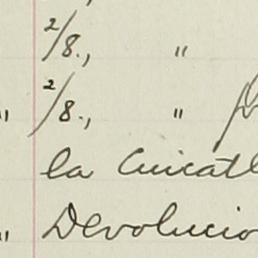 2/8., "
" 2/8., "
la Cuicatl
" Devolucio